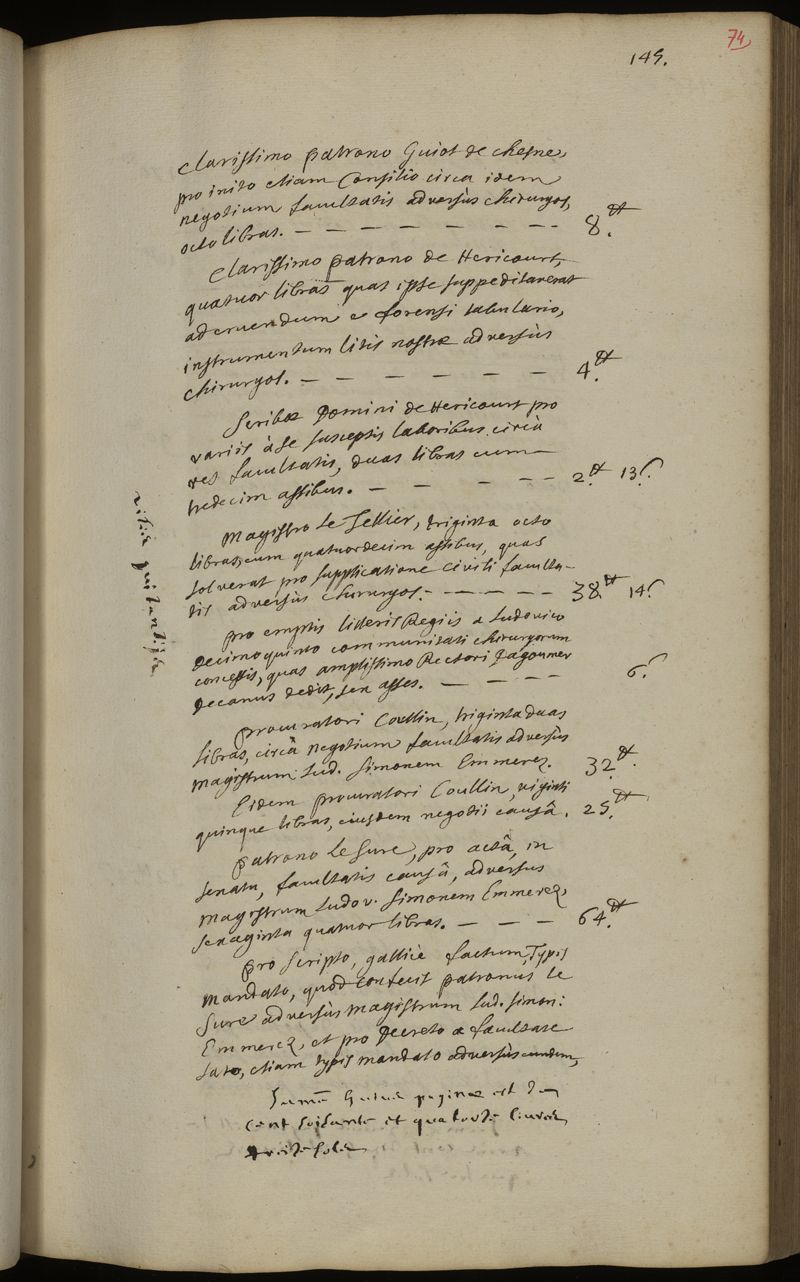 74
149.
clarissimo patrono Guiot de chesne,
pro inito etiam Consilio circa idem
negotium facultatis adversus chirurgos,
octo libras. — — — — — — — 8.tt
Clarissimo patrono de Hericourt,
quatuor libras quas ipse suppeditaverat
ad eruendum e forensi tabulario,
instrumentum litis nostræ adversùs
chirurgos. — — — — — — 4.tt
Scribæ Domini de Hericourt pro
variis à se susceptis laboribus circà
res facultatis, duas libras cum
tredecim assibus. — — — — — 2.tt 13.s
Magistro Le Tellier, triginta octo
libras, cum quatuordecim assibus, quas
solverat pro supplicatione civili faculta-
tis adversùs chirurgos. — — — — — 38.tt 14.s
pro emptis litteris Regiis a Ludovico
Decimo quinto communitati chirurgorum
concessis, quas amplissimo Rectori Dagoumer
Decanus dedit, sex asses. — — — — 6.s
procuratori Coullin, triginta duas
libras, circà negotium facultatis adversùs
magistrum Lud. Simonem Emmerez. 32.tt
Eidem procuratori Coullin, viginti
quinque libras, eiusdem negotii causâ. 25.tt
patrono Le Sure, pro actâ, in
senatu, facultatis causâ, adversus
magistrum Ludov. Simonem Emmerez,
sexaginta quatuor libras. — — — 64.tt
pro scripto, gallicè factum, Typis
mandato, quod confecit patronus le
Sure adversùs magistrum Lud. Simon:
Emmerez, et pro Decreto a facultate
lato, etiam typis mandato adversùs eundem,
paginæ est
cent soisante et quatorse livres
treise sols